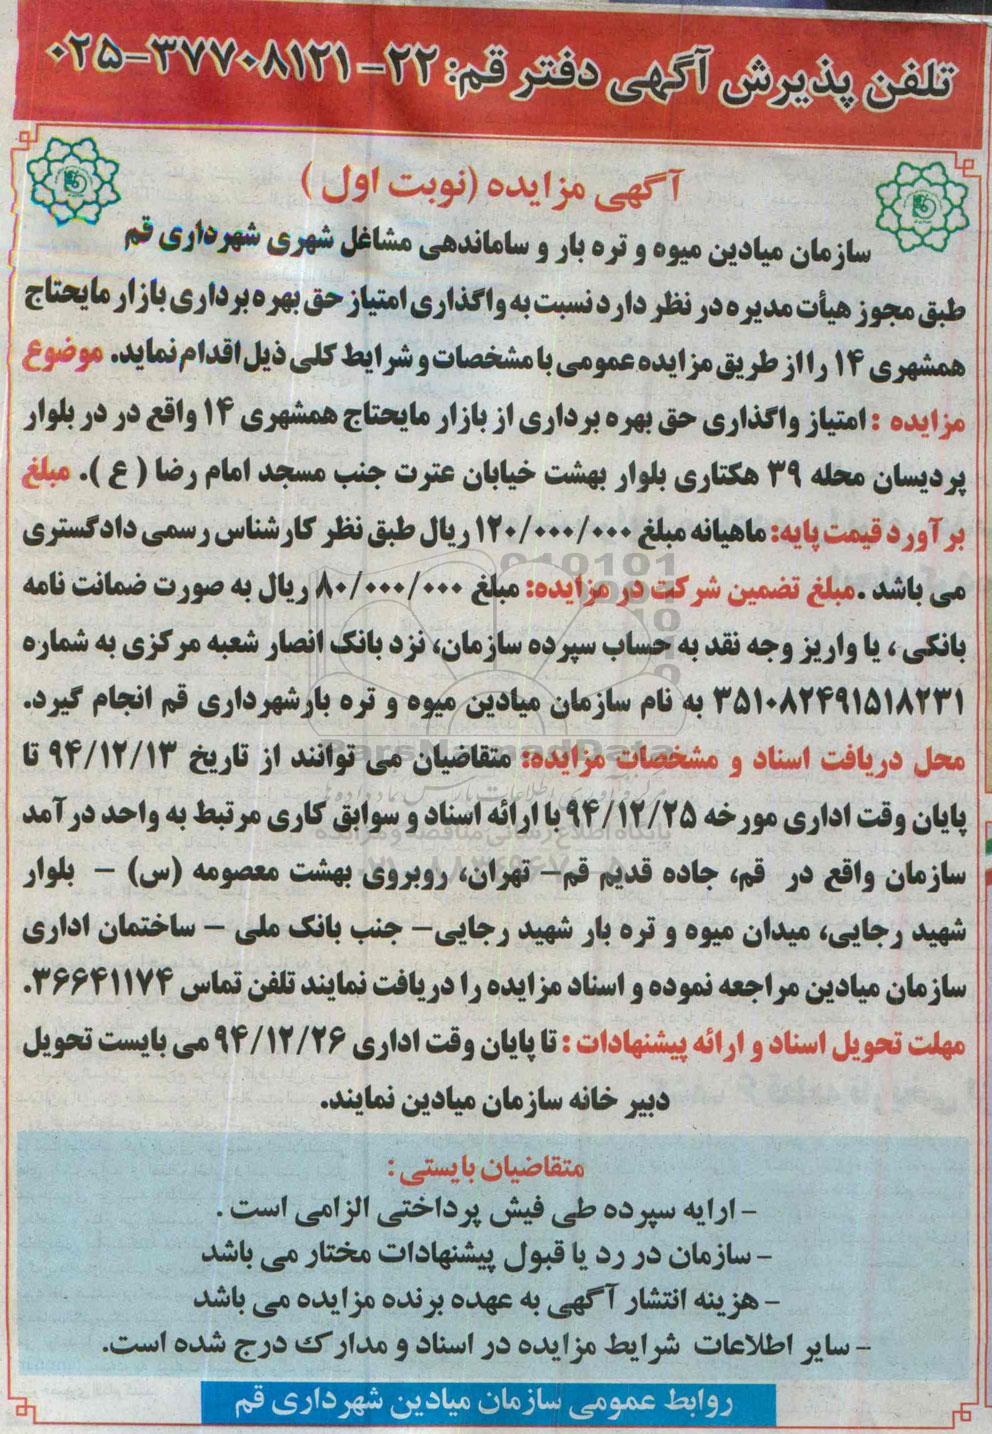 تلفن پذیرش آگهی دفتر قم: ۲۲-۳۷۷۰۸۱۲۱-۰۲۵
آگهی مزایده (نوبت اول)
سازمان میادین میوه و تره بار و ساماندهی مشاغل شهری شهرداری قم
طبق مجوز هیأت مدیره در نظر دارد نسبت به واگذاری امتیاز حق بهره برداری بازار مایحتاج
همشهری ۱۴ را از طریق مزایده عمومی با مشخصات و شرایط کلی ذیل اقدام نماید. موضوع
مزایده : امتیاز واگذاری حق بهره برداری از بازار مایحتاج همشهری ۱۴ واقع در در بلوار
پردیسان محله ۳۹ هکتاری بلوار بهشت خیابان عترت جنب مسجد امام رضا ( ع ). مبلغ
برآورد قیمت پایه: ماهیانه مبلغ ۱۲۰/۰۰۰/۰۰۰ ریال طبق نظر کارشناس رسمی دادگستری
می باشد .مبلغ تضمین شرکت در مزایده: مبلغ ۸۰/۰۰۰/۰۰۰ ریال به صورت ضمانت نامه
بانکی ، یا واریز وجه نقد به حساب سپرده سازمان، نزد بانک انصار شعبه مرکزی به شماره
۳۵۱۰۸۲۴۹۱۵۱۸۲۳۱ به نام سازمان میادین میوه و تره بارشهرداری قم انجام گیرد.
محل دریافت اسناد و مشخصات مزایده: متقاضیان می توانند از تاریخ ۹۴/۱۲/۱۳ تا
پایان وقت اداری مورخه ۹۴/۱۲/۲۵ با ارائه اسناد و سوابق کاری مرتبط به واحد درآمد
سازمان واقع در قم، جاده قدیم قم- تهران، روبروی بهشت معصومه (س) - بلوار
شهید رجایی، میدان میوه و تره بار شهید رجایی- جنب بانک ملی - ساختمان اداری
سازمان میادین مراجعه نموده و اسناد مزایده را دریافت نمایند تلفن تماس ۳۶۶۴۱۱۷۴.
مهلت تحویل اسناد و ارائه پیشنهادات : تا پایان وقت اداری ۹۴/۱۲/۲۶ می بایست تحویل
دبیر خانه سازمان میادین نمایند.
متقاضیان بایستی :
- ارایه سپرده طی فیش پرداختی الزامی است .
- سازمان در رد یا قبول پیشنهادات مختار می باشد
- هزینه انتشار آگهی به عهده برنده مزایده می باشد
- سایر اطلاعات شرایط مزایده در اسناد و مدارک درج شده است.
روابط عمومی سازمان میادین شهرداری قم